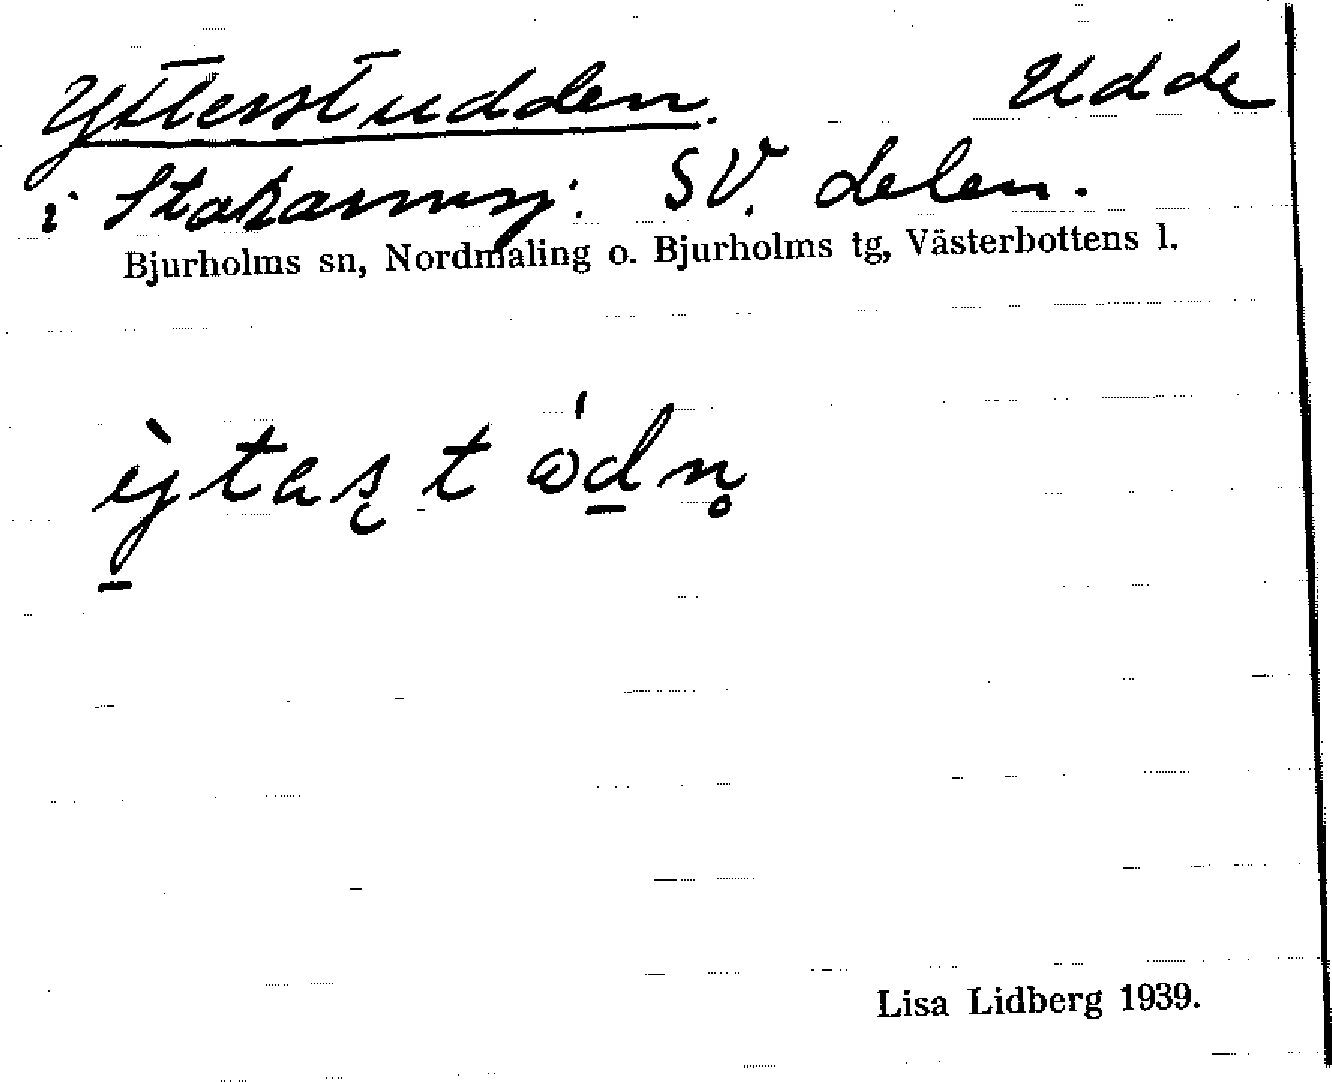 Ytterstudden. Udde
i Stakamyj. SV. delen.
Bjurholms sn, Nordmaling o. Bjurholms tg, Västerbottens l.
Lisa Lidberg 1939.